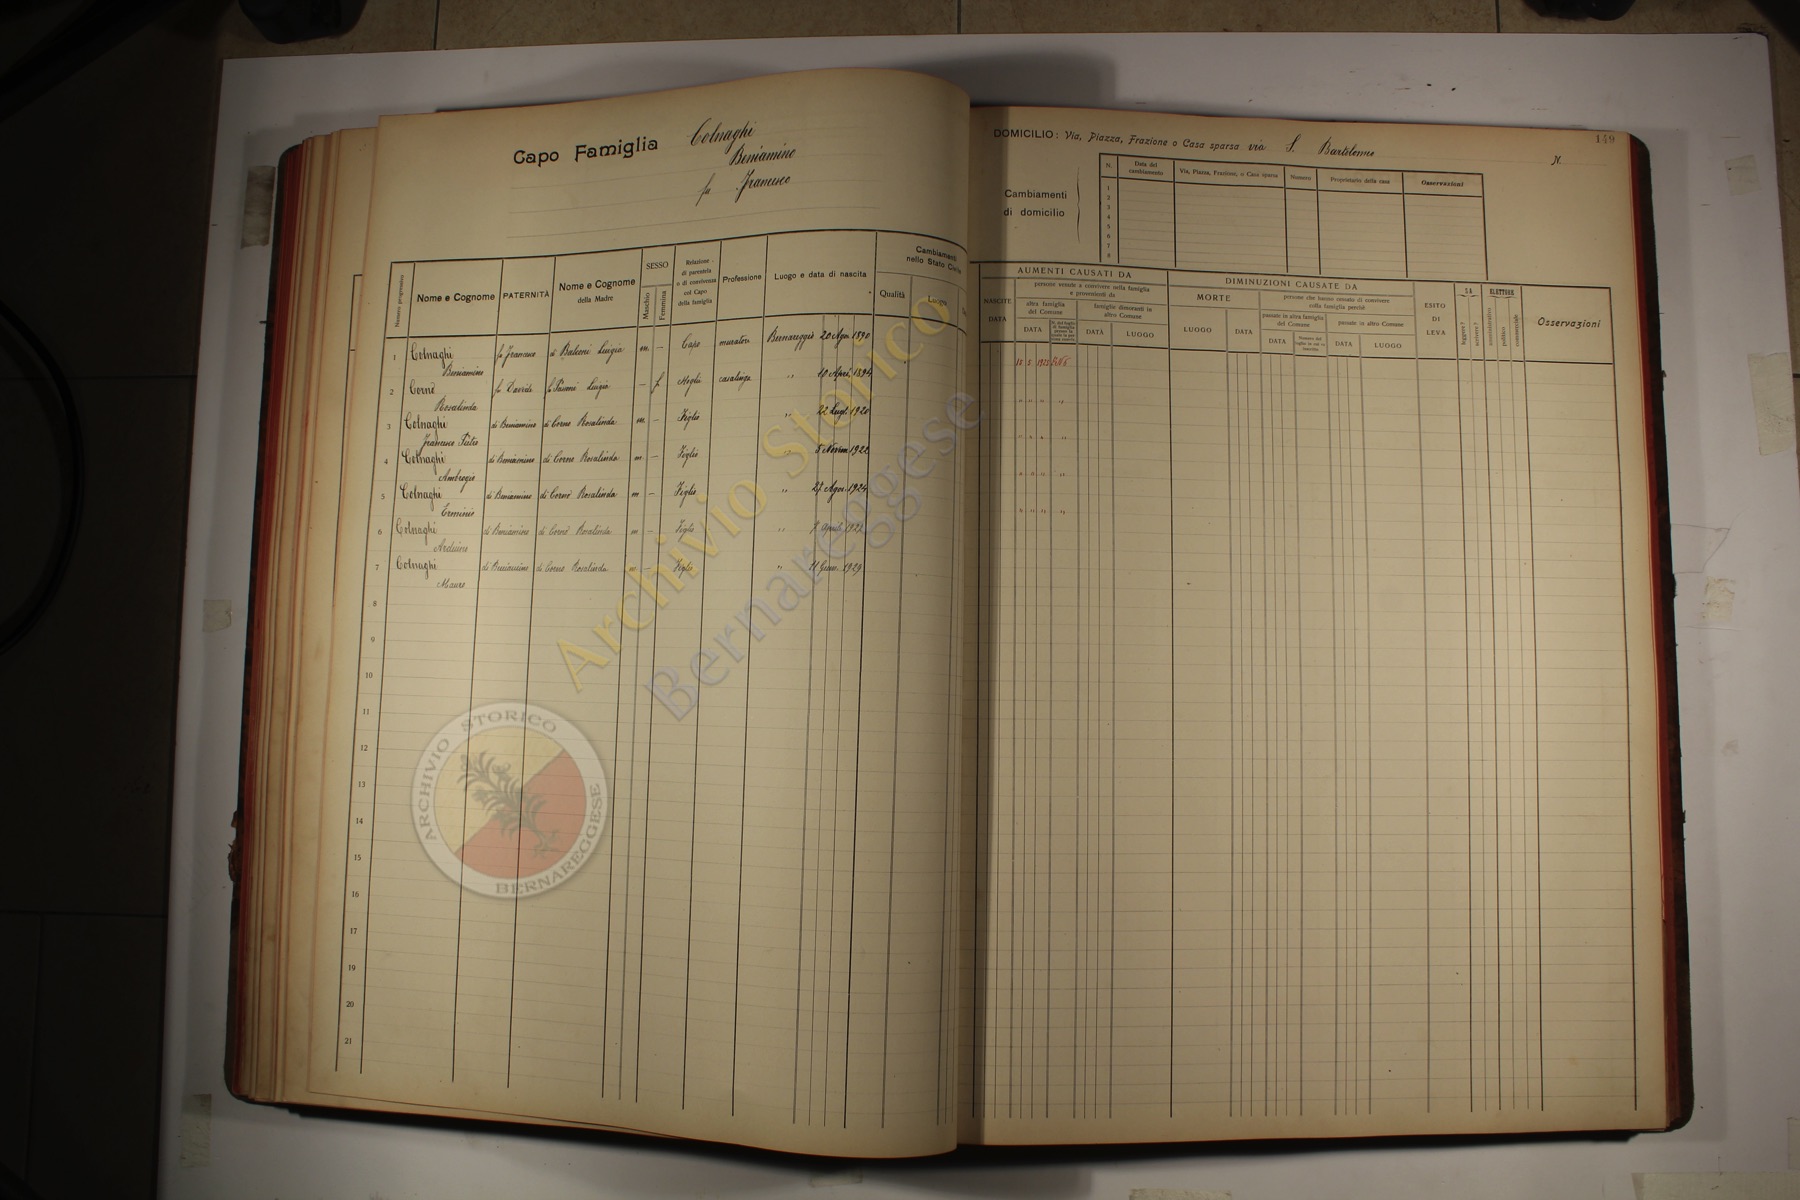 Capo Famiglia Colnaghi
Beniamino
fu Francesco
Numero progressivo
Nome e Cognome
PATERNITÀ
Nome e Cognome
della Madre
SESSO
Maschio
Femmina
Relazione
di parentela
o di convivenza
col Capo
della famiglia
Professione
Luogo e data di nascita
Cambiamenti
nello Stato Civile
Qualità
Luogo
1 Colnaghi fu Francesco di Balconi Luigia m. – Capo muratore Bernareggio 20 Ago. 1890
Beniamino
2 Cornè fu Davide fu Luigia – f. Moglie casalinga " 10 Apri. 1894
Rosalinda
3 Colnaghi di Beniamino di Corno Rosalinda m. – Figlio " 22 Lugl. 1920
Francesco Pietro
4 Colnaghi di Beniamino di Corno Rosalinda m – Figlio " 5 Novem 1922
Ambrogio
5 Colnaghi di Beniamino di Cornò Rosalinda m – Figlio " 27 Agos. 1924
Erminio
6 Colnaghi di Beniamino di Cornò Rosalinda m – Figlio " 7 Aprile
Arduino
7 Colnaghi di Beniamino di Corno Rosalinda m – Figlio " 11 Genn. 1929
Mauro
8
9
10
11
12
13
14
15
16
17
18
19
20
21
149
DOMICILIO: Via, Piazza, Frazione o Casa sparsa via S. Bartolomeo N.
Cambiamenti
di domicilio
N.
Data del
cambiamento
Via, Piazza, Frazioni, o Casa sparsa
Numero
Proprietario della casa
Osservazioni
1
2
3
4
5
6
7
8
AUMENTI CAUSATI DA
NASCITE
DATA
persone venute a convivere nella famiglia
e provenienti da
altra famiglia
del Comune
DATA
famiglie dimoranti in
altro Comune
DATA
LUOGO
DIMINUZIONI CAUSATE DA
MORTE
LUOGO
DATA
persone che hanno cessato di convivere
colla famiglia perchè
passate in altra famiglia
del Comune
DATA
passate in altro Comune
DATA
LUOGO
ESITO
DI
LEVA
SA
leggere?
scrivere?
ELETTORE
amministrativo
politico
commerciale
Osservazioni
15 5 1925
" " " "
" " " "
" " " "
" " " "
Archivio Storico
Bernareggese
ARCHIVIO STORICO
BERNAREGGESE